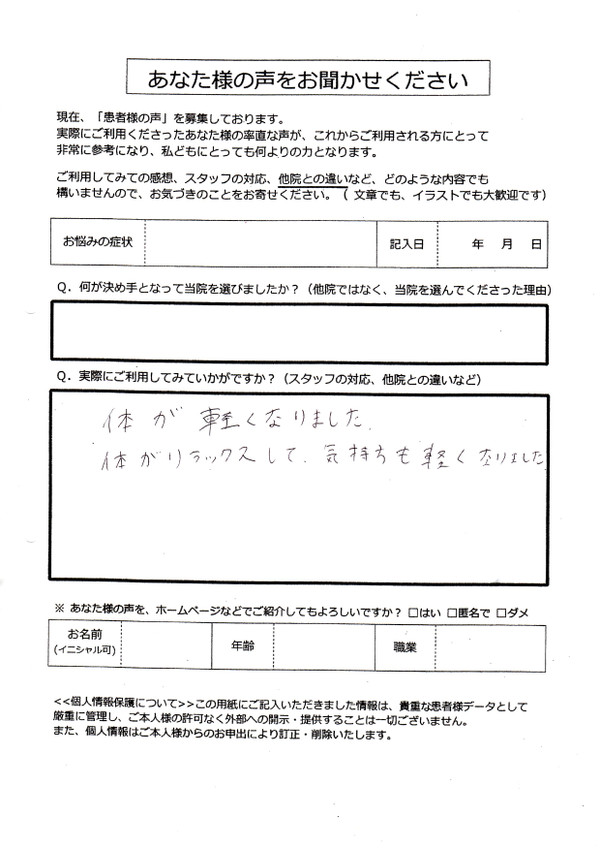 あなた様の声をお聞かせください
現在、「患者様の声」を募集しております。
実際にご利用くださったあなた様の率直な声が、これからご利用される方にとって
非常に参考になり、私どもにとっても何よりの力となります。
ご利用してみての感想、スタッフの対応、他院との違いなど、どのような内容でも
構いませんので、お気づきのことをお寄せください。（ 文章でも、イラストでも大歓迎です）
お悩みの症状 記入日 年 月 日
Ｑ．何が決め手となって当院を選びましたか？（他院ではなく、当院を選んでくださった理由）
Ｑ．実際にご利用してみていかがですか？（スタッフの対応、他院との違いなど）
体が軽くなりました.
体がリラックスして、気持ちも軽くなりました
※ あなた様の声を、ホームページなどでご紹介してもよろしいですか？ □はい □匿名で □ダメ
お名前
(イニシャル可)
年齢
職業
<<個人情報保護について>>この用紙にご記入いただきました情報は、貴重な患者様データとして
厳重に管理し、ご本人様の許可なく外部への開示・提供することは一切ございません。
また、個人情報はご本人様からのお申出により訂正・削除いたします。